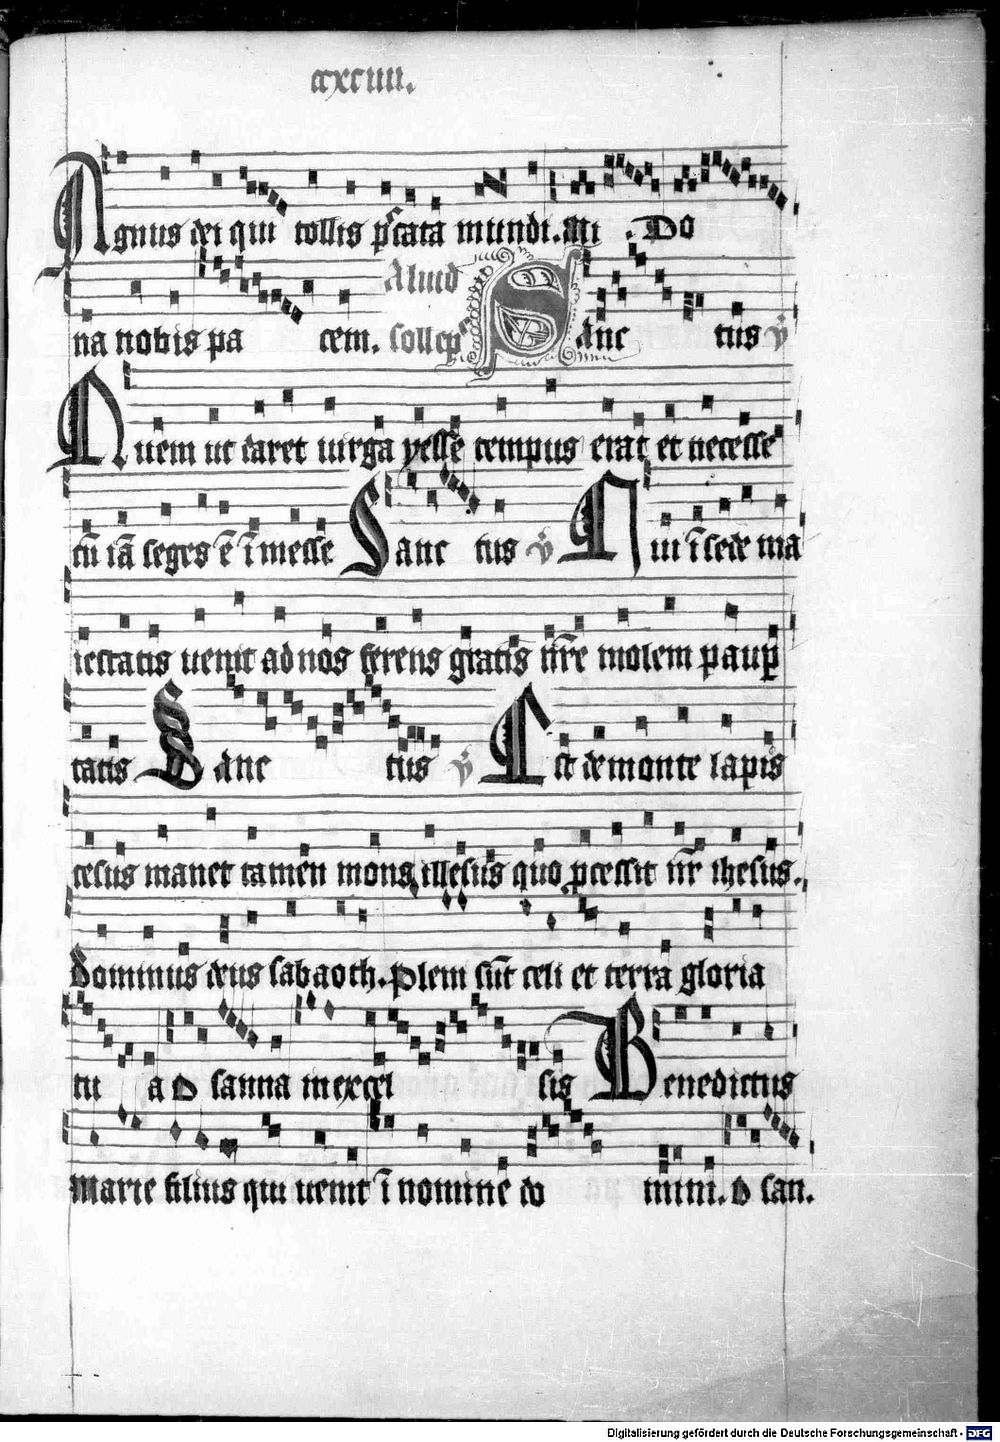 ccxciiii.
Agnus dei qui tollis pctata mundi. Mi . Do
Aliud
na nobis pa cem. sollep Sanc tus v̊
Quem ut daret uirga yesse tempus erat et necesse
cū iā seges ē ī messe Sanc tus v̊ Qui ī sede ma
iestatis uenit ad nos ferens gratis nr̄e molem paup
tatis Sanc tus v̊ Est de monte lapis
cesus manet tamen mons illesus quo pcessit nr̄ ihesus.
dominus deus sabaoth. Pleni sūt celi et terra gloria
tu a O sanna in excel sis Benedictus
Marie filius qui uenit ī nomine do mini. O san.
Digitalisierung gefördert durch die Deutsche Forschungsgemeinschaft - DFG